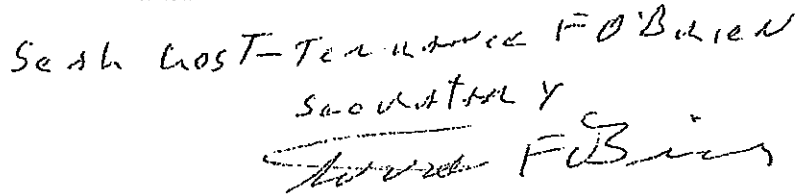 Seal lost - Terrance F O'Brien
Secretary
Terrance F O'Brien